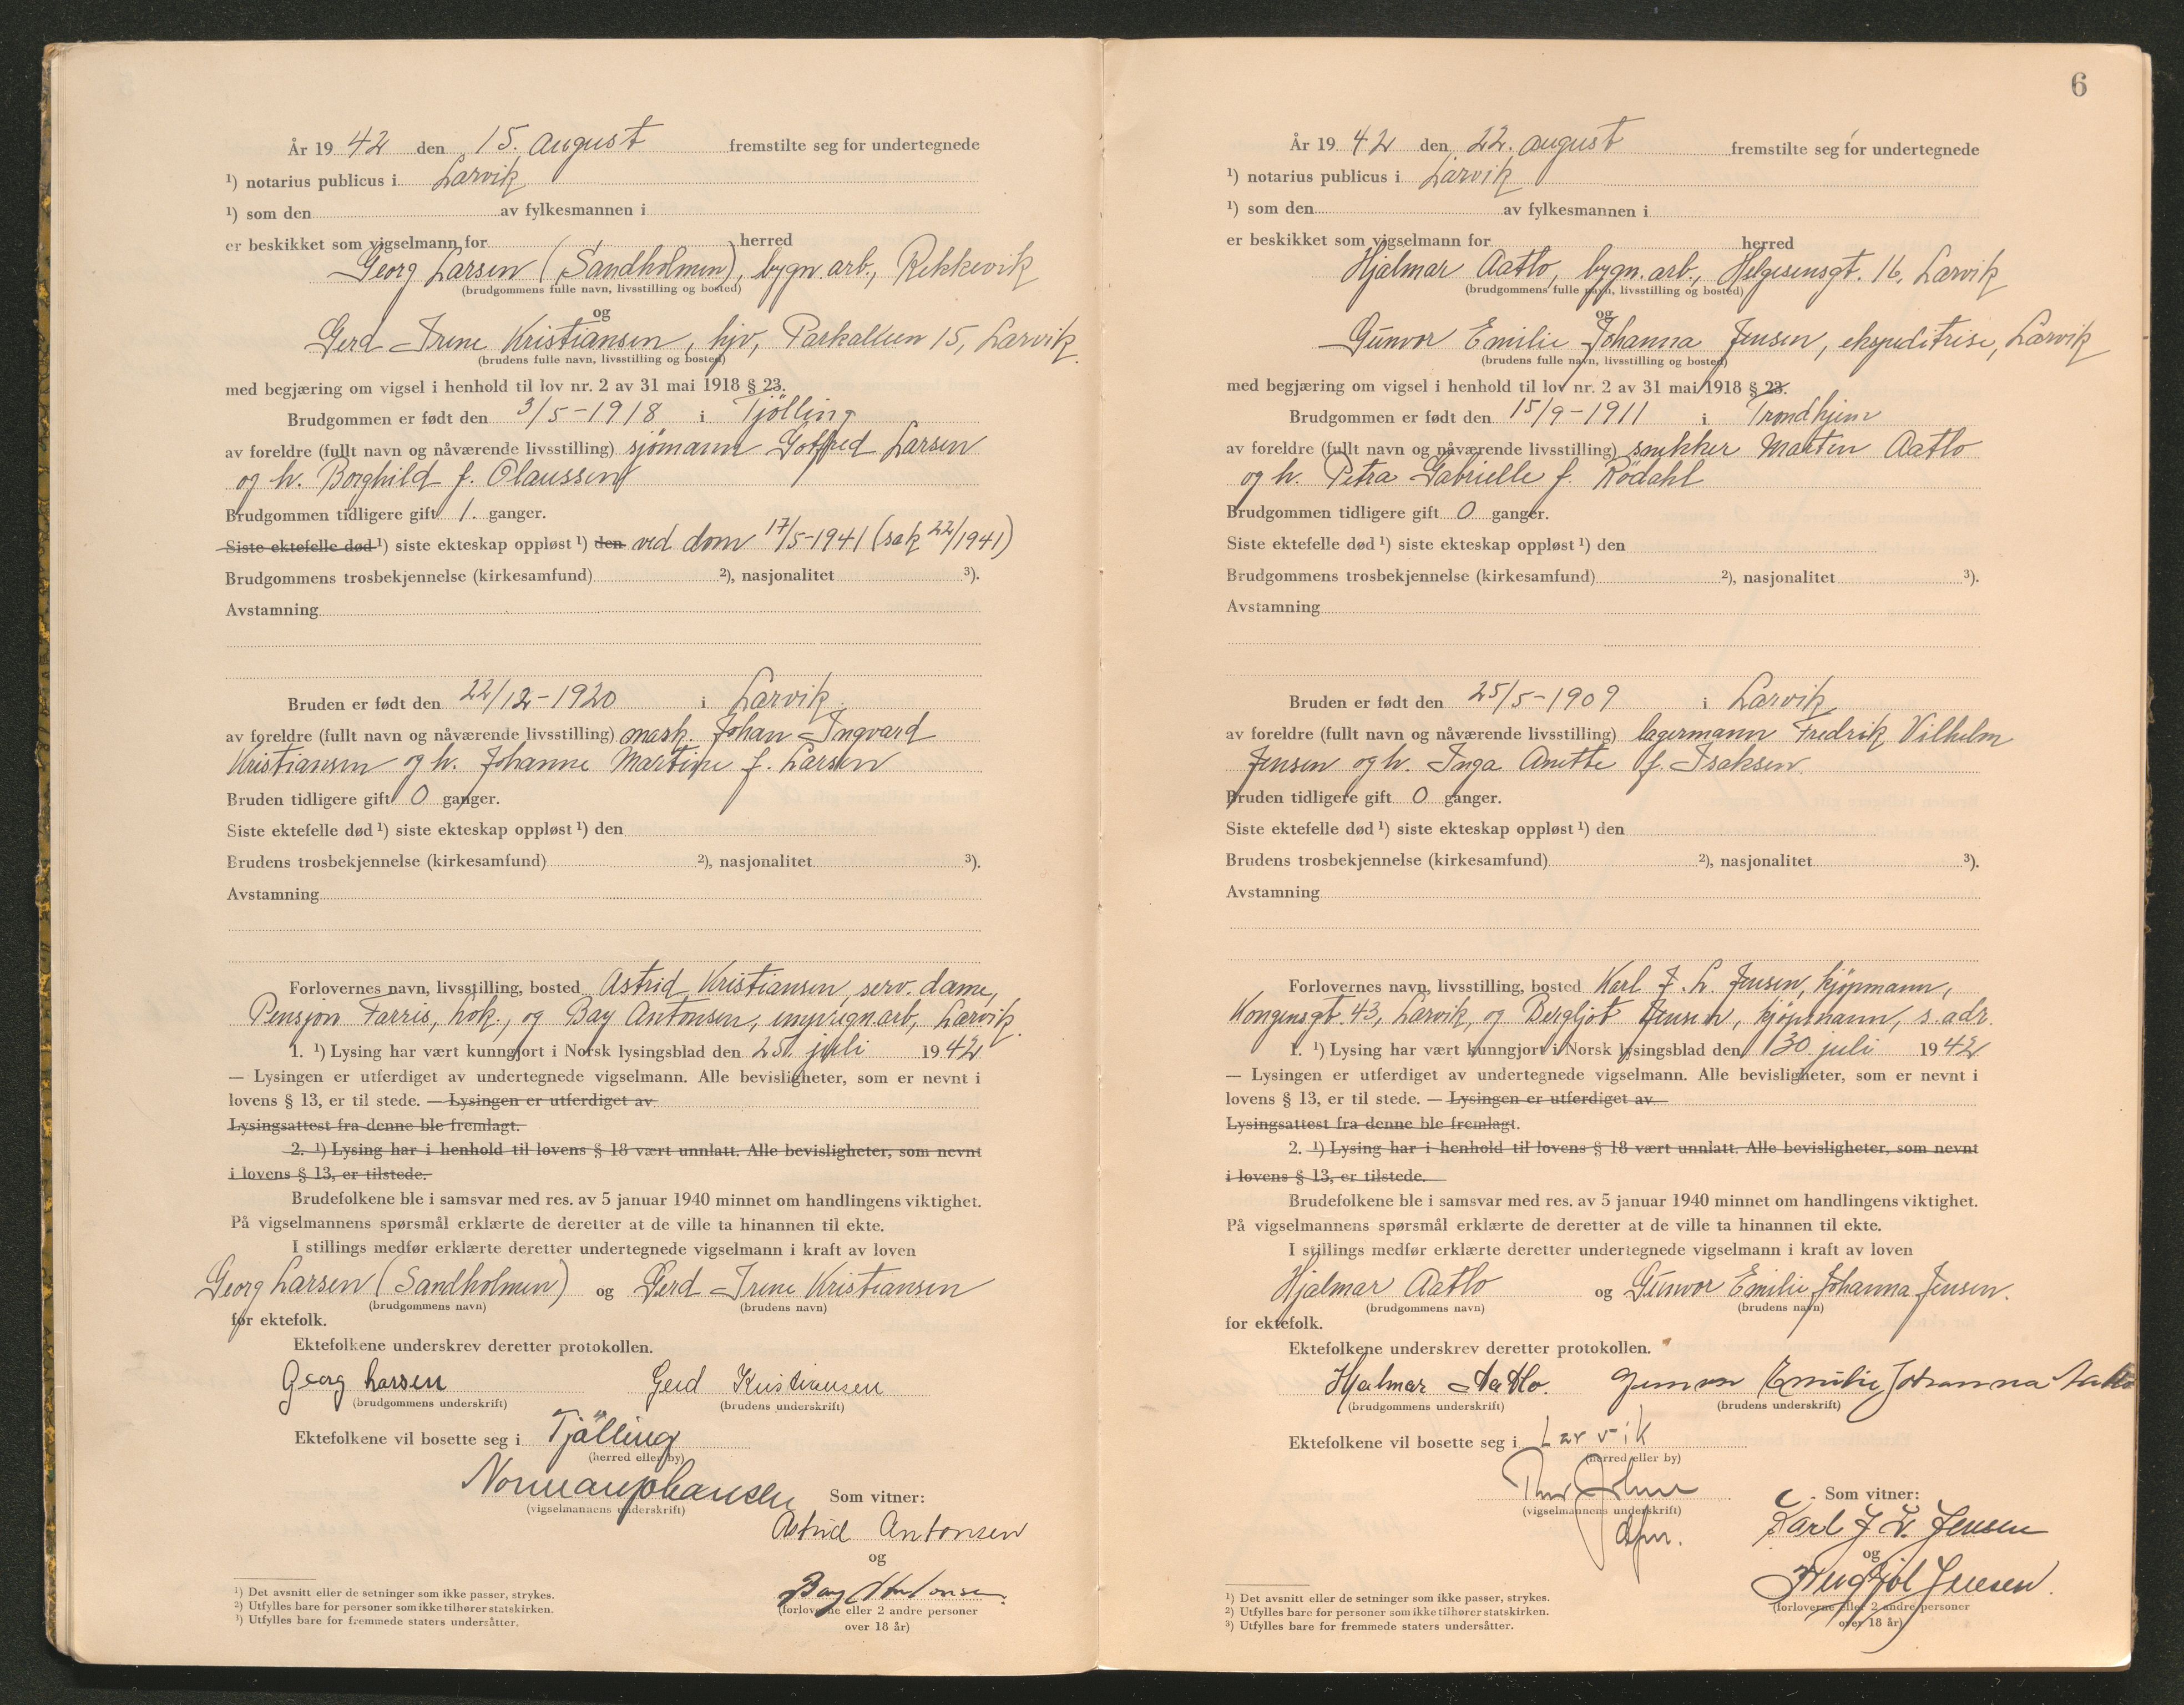 År 1942 den 15. august fremstilte seg for undertegnede
¹) notarius publicus i Larvik
¹) som den av fylkesmannen i
er beskikket som vigselmann for herred
Georg Larsen (Sandholmen), bygn. arb., Rekkevik
(brudgommens fulle navn, livsstilling og bosted)
og
Gerd Irene Kristiansen, hjv, Parkalleen 15, Larvik.
(brudens fulle navn, livsstilling og bosted)
med begjæring om vigsel i henhold til lov nr. 2 av 31 mai 1918 § 23.
Brudgommen er født den 3/5-1918 i Tjölling
av foreldre (fullt navn og nåværende livsstilling) sjömann Gotfred Larsen
og h. Borghild f. Olaussen
Brudgommen tidligere gift 1. ganger.
Siste ektefelle død ¹) siste ekteskap oppløst ¹) den ved dom 17/5-1941 (sak 22/1941)
Brudgommens trosbekjennelse (kirkesamfund) ²), nasjonalitet ³).
Avstamning
Bruden er født den 22/12-1920 i Larvik.
av foreldre (fullt navn og nåværende livsstilling) mask. Johan Ingvard
Kristiansen og h. Johanne Martine f. Larsen
Bruden tidligere gift 0 ganger.
Siste ektefelle død ¹) siste ekteskap oppløst ¹) den
Brudens trosbekjennelse (kirkesamfund) ²), nasjonalitet ³).
Avstamning
Forlovernes navn, livsstilling, bosted Astrid Kristiansen, serv. dame,
Pensjon Farris, hok., og Bay Antonsen, Larvik.
1. ¹) Lysing har vært kunngjort i Norsk lysingsblad den 25. juli 1942
— Lysingen er utferdiget av undertegnede vigselmann. Alle bevisligheter, som er nevnt i
lovens § 13, er til stede. — Lysingen er utferdiget av
Lysingsattest fra denne ble fremlagt.
2. ¹) Lysing har i henhold til lovens § 18 vært unnlatt. Alle bevisligheter, som nevnt
i lovens § 13, er tilstede.
Brudefolkene ble i samsvar med res. av 5 januar 1940 minnet om handlingens viktighet.
På vigselmannens spørsmål erklærte de deretter at de ville ta hinannen til ekte.
I stillings medfør erklærte deretter undertegnede vigselmann i kraft av loven
Georg Larsen (Sandholmen) og Gerd Irene Kristiansen
(brudgommens navn) (brudens navn)
for ektefolk.
Ektefolkene underskrev deretter protokollen.
Georg Larsen Gerd Kristiansen
(brudgommens underskrift) (brudens underskrift)
Ektefolkene vil bosette seg i Tjölling
(herred eller by)
Norman Johansen Som vitner:
(vigselmannens underskrift)
Astrid Antonsen
og
Bay Antonsen.
(forloverne eller 2 andre personer
over 18 år)
¹) Det avsnitt eller de setninger som ikke passer, strykes.
²) Utfylles bare for personer som ikke tilhører statskirken.
³) Utfylles bare for fremmede staters undersåtter.
6
År 1942 den 22. august fremstilte seg for undertegnede
¹) notarius publicus i Larvik
¹) som den av fylkesmannen i
er beskikket som vigselmann for herred
Hjalmar Aatlo, bygn. arb., Helgesensgt. 16, Larvik
(brudgommens fulle navn, livsstilling og bosted)
og
Gunvor Emilie Johanna Jensen, ekspeditrise, Larvik
(brudens fulle navn, livsstilling og bosted)
med begjæring om vigsel i henhold til lov nr. 2 av 31 mai 1918 § 23.
Brudgommen er født den 15/9-1911 i Trondhjem
av foreldre (fullt navn og nåværende livsstilling) snekker Martin Aatlo
og h. Petra Gabrielle f. Rödahl
Brudgommen tidligere gift 0 ganger.
Siste ektefelle død ¹) siste ekteskap oppløst ¹) den
Brudgommens trosbekjennelse (kirkesamfund) ²), nasjonalitet ³).
Avstamning
Bruden er født den 25/5-1909 i Larvik
av foreldre (fullt navn og nåværende livsstilling) lagermann Fredrik Vilhelm
Jensen og h. Inga Anette f. Isaksen.
Bruden tidligere gift 0 ganger.
Siste ektefelle død ¹) siste ekteskap oppløst ¹) den
Brudens trosbekjennelse (kirkesamfund) ²), nasjonalitet ³).
Avstamning
Forlovernes navn, livsstilling, bosted Karl F. L. Jensen, kjöpmann,
Kongensgt. 43, Larvik, og Bergljot Jensen, kjöpmann, s. adr.
1. ¹) Lysing har vært kunngjort i Norsk lysingsblad den 30 juli 1942
— Lysingen er utferdiget av undertegnede vigselmann. Alle bevisligheter, som er nevnt i
lovens § 13, er til stede. — Lysingen er utferdiget av
Lysingsattest fra denne ble fremlagt.
2. ¹) Lysing har i henhold til lovens § 18 vært unnlatt. Alle bevisligheter, som nevnt
i lovens § 13, er tilstede.
Brudefolkene ble i samsvar med res. av 5 januar 1940 minnet om handlingens viktighet.
På vigselmannens spørsmål erklærte de deretter at de ville ta hinannen til ekte.
I stillings medfør erklærte deretter undertegnede vigselmann i kraft av loven
Hjalmar Aatlo og Gunvor Emilie Johanna Jensen.
(brudgommens navn) (brudens navn)
for ektefolk.
Ektefolkene underskrev deretter protokollen.
Hjalmar Aatlo. Gunvor Emilie Johanna Aatlo
(brudgommens underskrift) (brudens underskrift)
Ektefolkene vil bosette seg i Larvik
(herred eller by)
Som vitner:
(vigselmannens underskrift)
Karl F. L. Jensen
og
Jensen.
(forloverne eller 2 andre personer
over 18 år)
¹) Det avsnitt eller de setninger som ikke passer, strykes.
²) Utfylles bare for personer som ikke tilhører statskirken.
³) Utfylles bare for fremmede staters undersåtter.